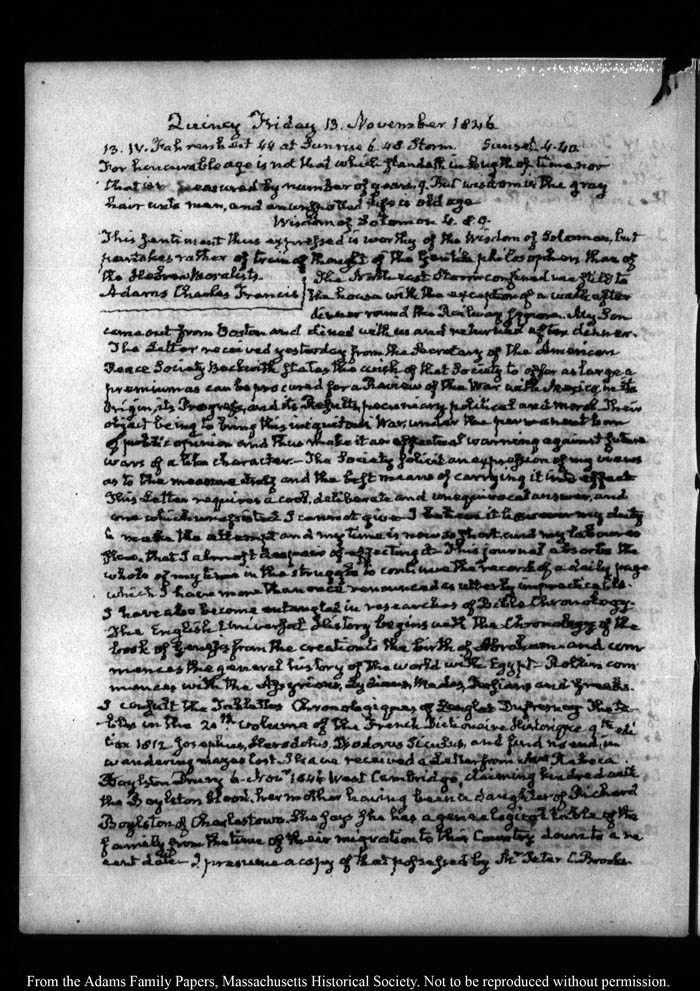 Quincy Friday 13. November 1846
13. IV. Fahrenheit 44 at Sunrise 6.48 Storm Sunset 4.40
For honourable age is not that which standeth in length of time, nor
that is measured by number of years. 9. But wisdom is the gray
hair unto men, and an unspotted life is old age
Wisdom of Solomon 4. 8. 9.
This sentiment thus expressed is worthy of the Wisdom of Solomon, but
partakes rather of train of thought of the Gentile philosophers than of
the Hebrew Moralists. The North east Storm confined me still to
Adams Charles Francis the house with the exception of a walk after
dinner round the Railway Square. My Son
came out from Boston and dined with us and returned after dinner.
The Letter received yesterday from the Secretary of the American
Peace Society Beckwith states the wish of that Society to offer as large a
premium as can be procured for a Review of the War with Mexico, in its
Origin, its Progress, and its Results, pecuniary, political and moral. Their
object being to bring this iniquitous War, under the permanent ban
of public opinion and thus make it an effectual warning against future
wars of a like character. The Society solicit an expression of my views
as to the measure itself and the best means of carrying it into effect
This Letter requires a cool, deliberate and unequivocal answer, and
one which unassisted I cannot give I believe it however my duty
to make the attempt and my time is now so short, and my labour so
slow, that I almost despair of effecting it. This journal absorbs the
whole of my time in the struggle to continue the record of a daily page
which I have more than once renounced as utterly impracticable.
I have also become entangled in researches of Bible Chronology.
The English Universal History begins with the Chronology of the
book of Genesis from the creation to the birth of Abraham and com
mences the general history of the world with Egypt. Rollin com
mences with the Assyrians, Lydians, Medes, Persians and Greeks.
I consult the Tablettes Chronologiques of Lenglet Dufresnoy the ta
bles in the 20th volume of the French Dictionaire Historique 9th edi
tion 1812 Josephus, Herodotus, Diodorus Siculus, and find no end, in
wandering mazes lost. I have received a Letter from Mrs Rebecca
Boylston 6. Novr 1846 West Cambridge, claiming kindred with
the Boylston blood, her mother having been a daughter of Richard
Boylston of Charlestown. She says she has a genealogical table of the
family from the time of their migration to this Country down to a re
cent date I presume a copy of that possessed by Mr Peter C. Brooks
From the Adams Family Papers, Massachusetts Historical Society. Not to be reproduced without permission.